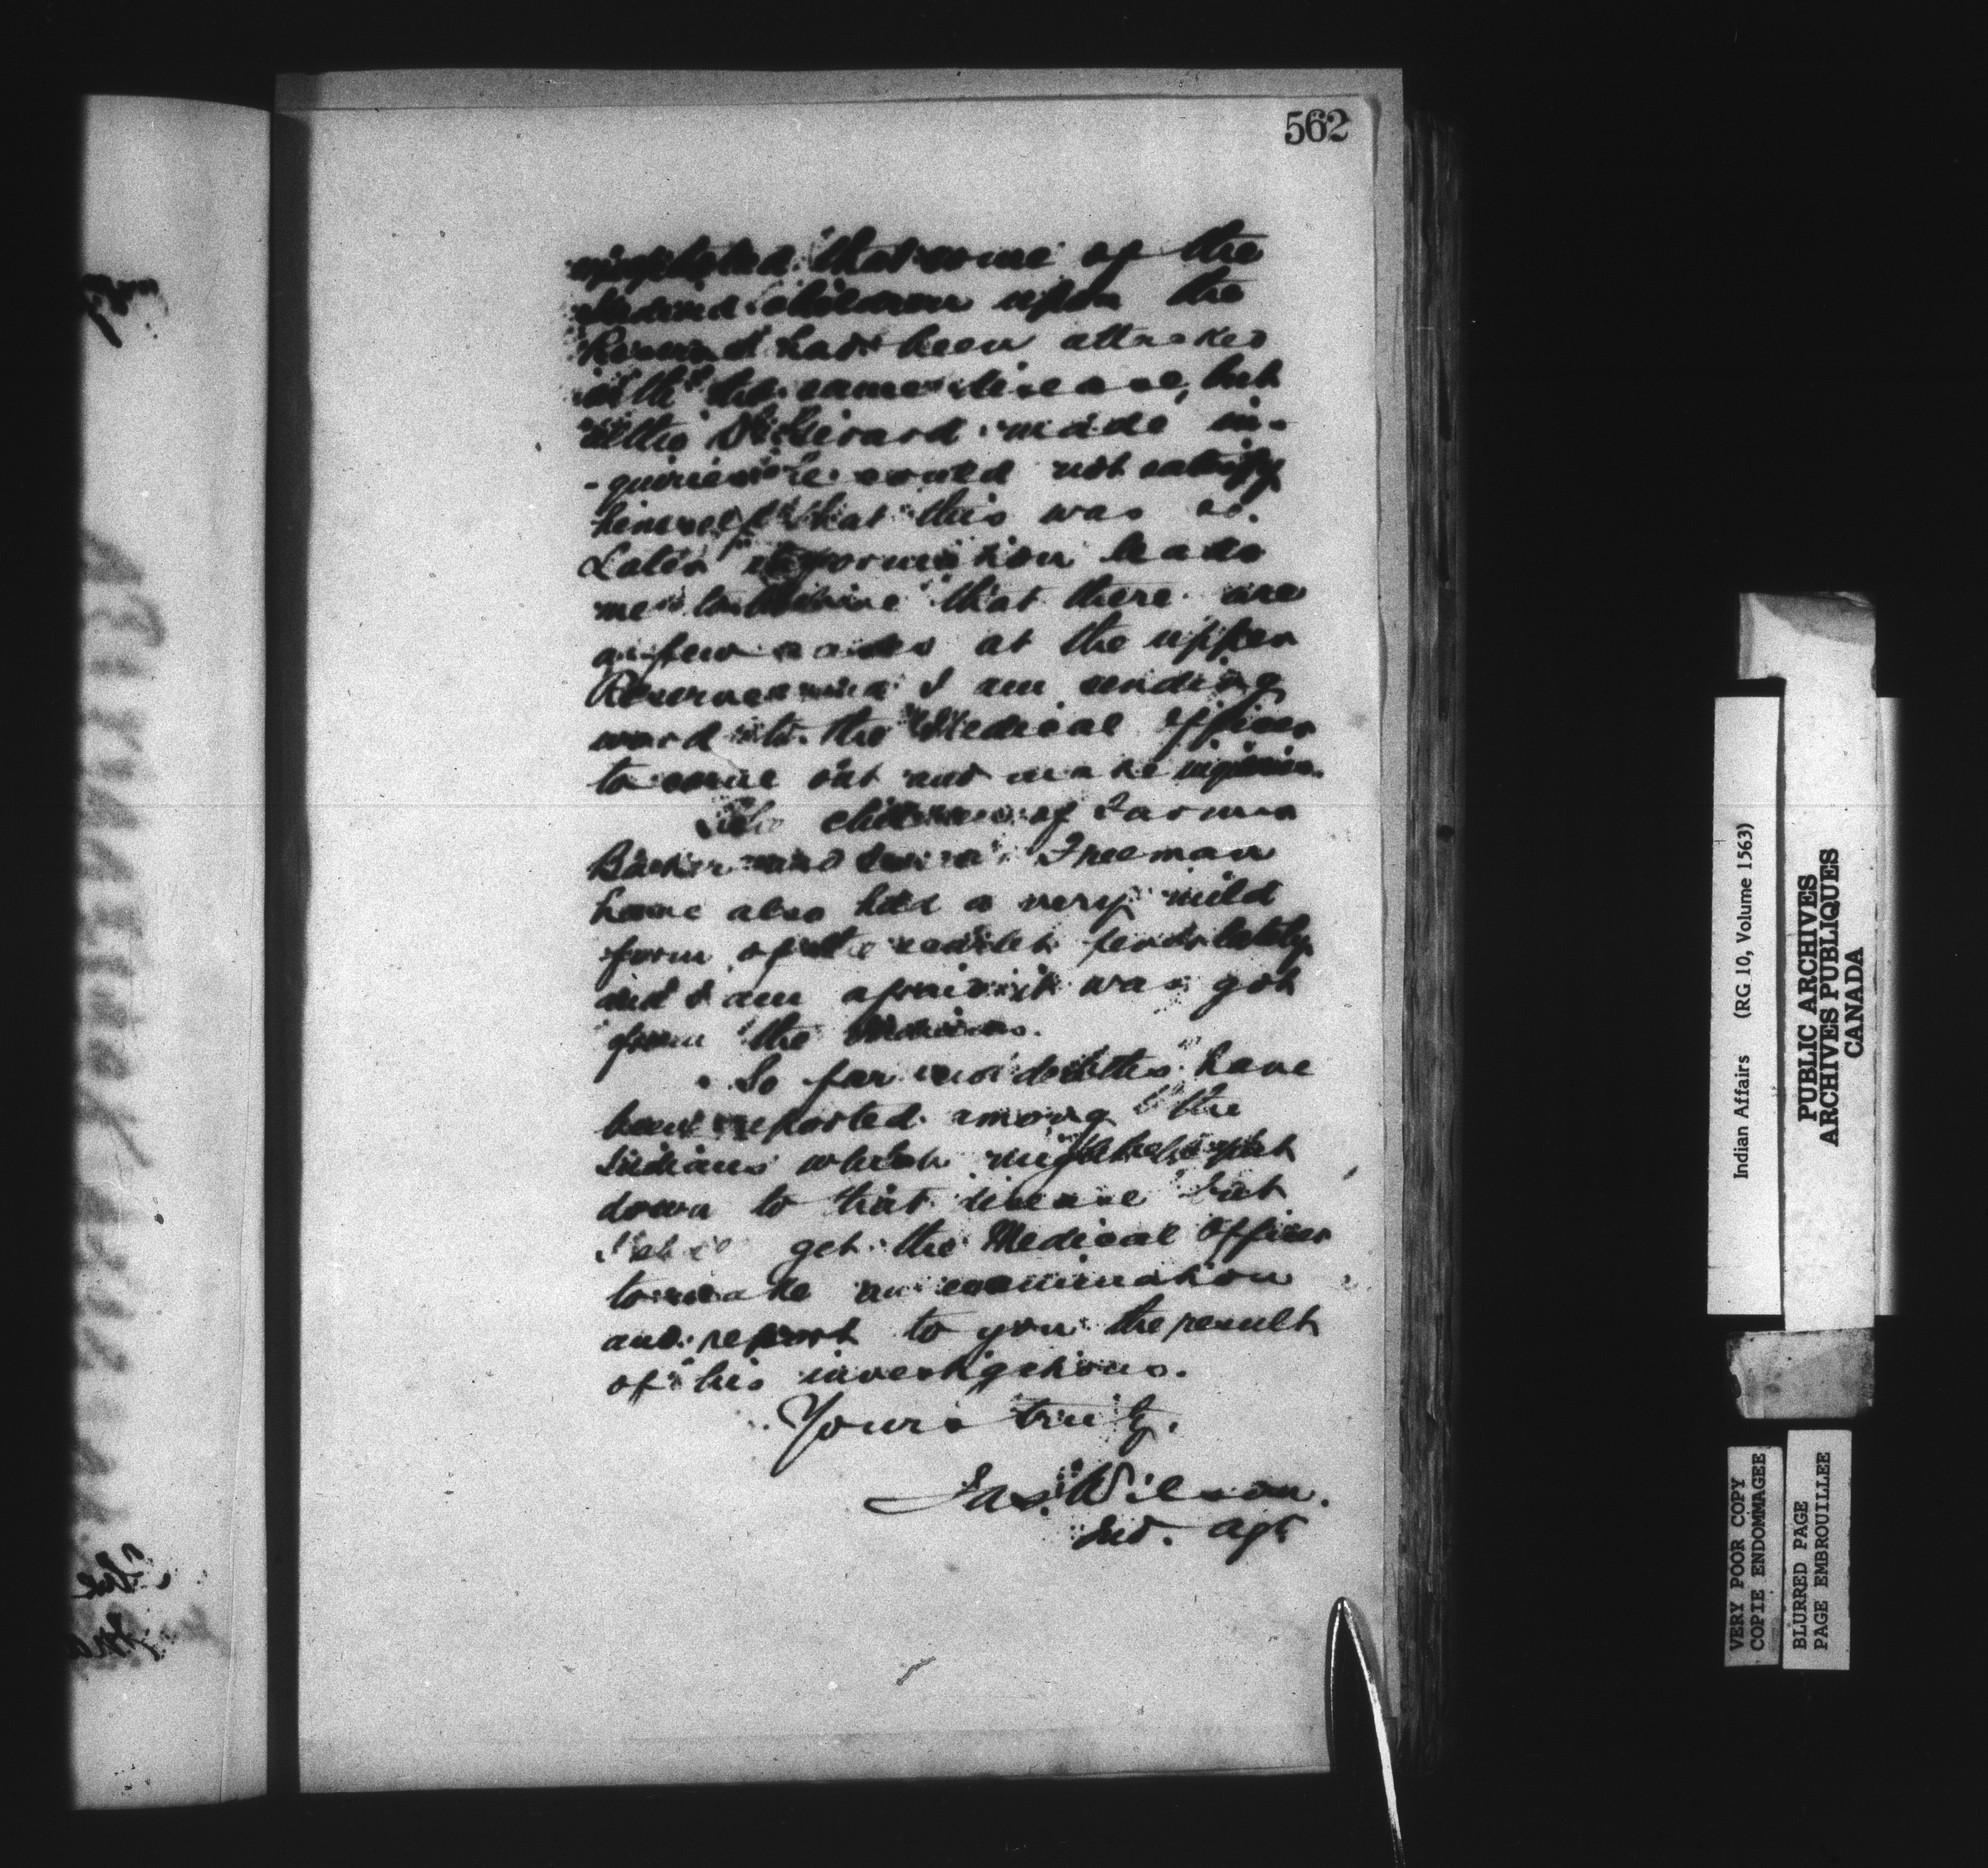 562
that some of the
Indian children upon the
Reserve had been attacked
with the same disease, but
altho Dr Girard made in-
-quiries he could not satisfy
himself that this was so.
Later information leads
me to believe that there are
a few cases at the upper
Reserve and I am sending
word to the Medical Officer
to come out and make inquiries.
The children of Farmer
Baker and Freeman
have also had a very mild
form of the scarlet fever lately
and I am afraid it was got
from the Indians.
So far no deaths have
been reported among the
Indians which might be put
down to that disease but
I shall get the Medical Officer
to make an examination
and report to you the result
of his investigations.
Yours truly.
Jas. Wilson.
Ind. Agt
Indian Affairs (RG 10, Volume 1563)
PUBLIC ARCHIVES
ARCHIVES PUBLIQUES
CANADA
VERY POOR COPY
COPIE ENDOMMAGEE
BLURRED PAGE
PAGE EMBROUILLEE